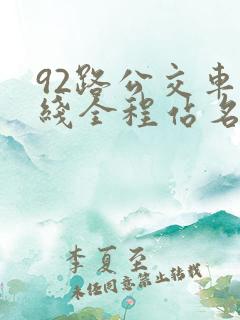 92路公交車
綫全程佔名
李夏至
未经同意禁止转载